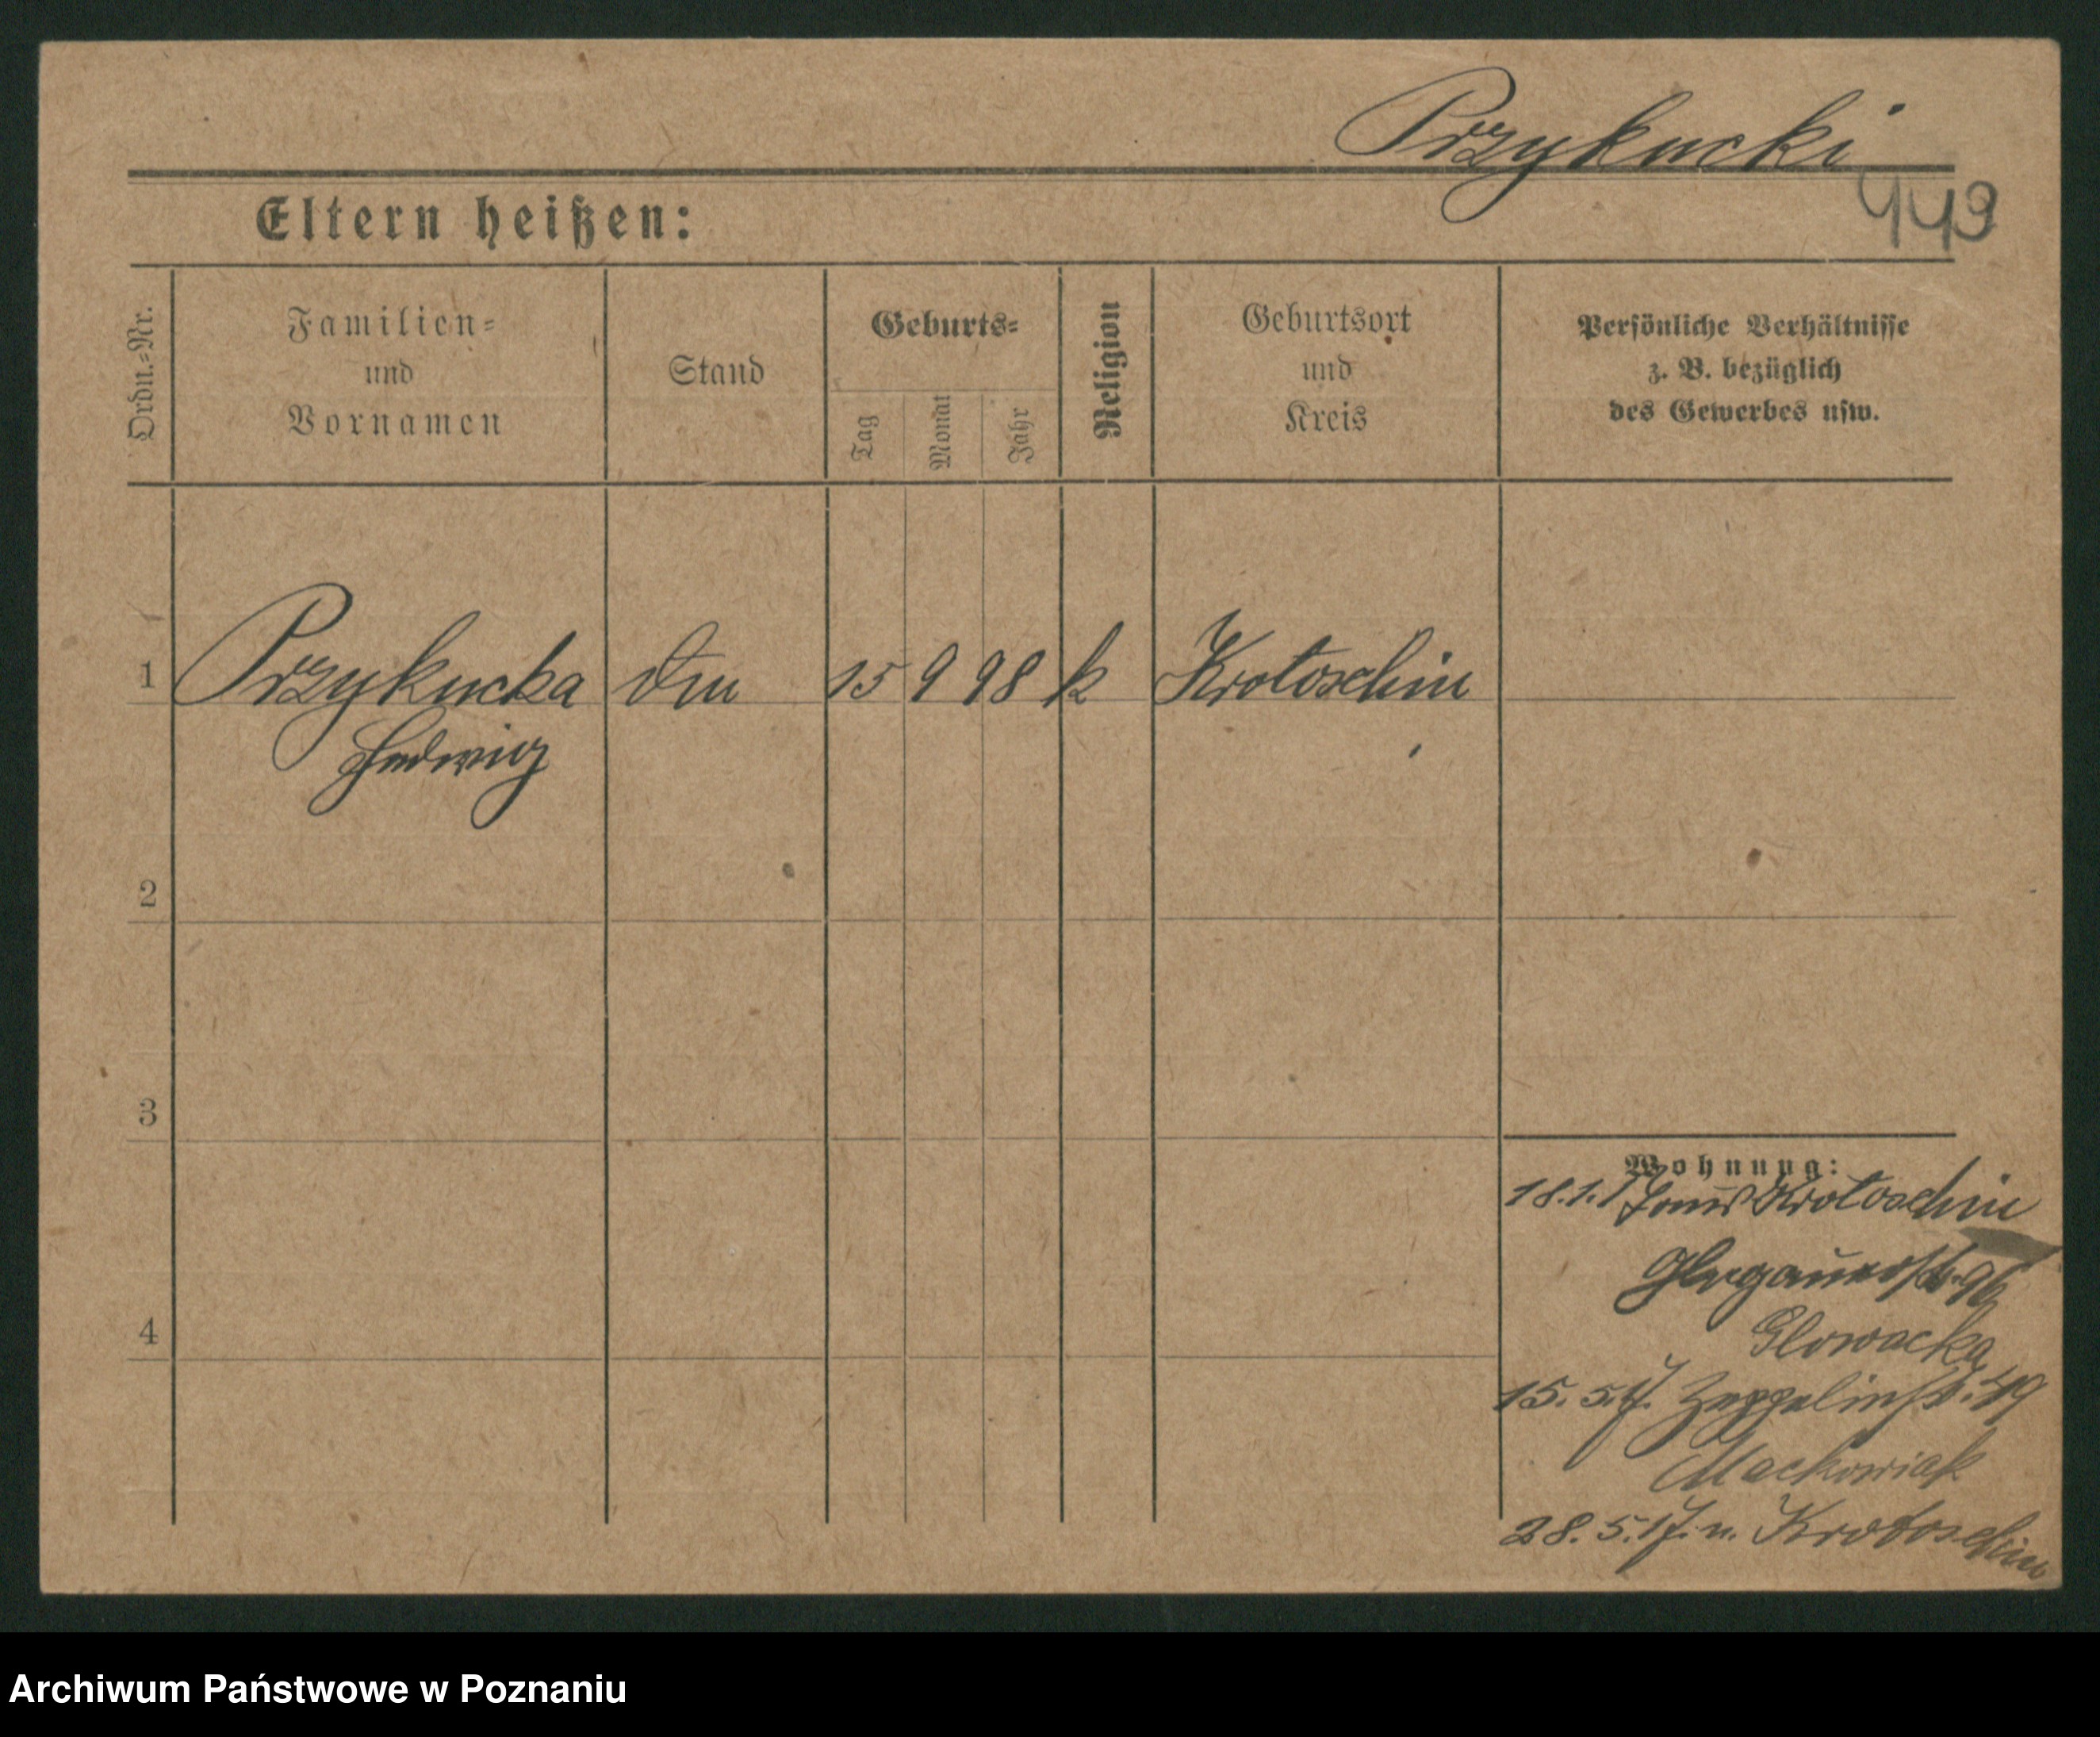 Przykucki
443
Eltern heißen:
Ordn.-Nr.
Familien-
und
Vornamen
Stand
Geburts-
Tag
Monat
Jahr
Religion
Geburtsort
und
Kreis
Persönliche Verhältnisse
z. B. bezüglich
des Gewerbes usw.
1 Przykucka 15 9 98 k Krotoschin
Hedwig
2
3
4
Wohnung:
18.1.17 Krotoschin
Glogauerstr. 96
Glowacka
15.5.17. Zeppelinstr. 49
Mackowiak
28.5.17. n. Krotoschin
Archiwum Państwowe w Poznaniu